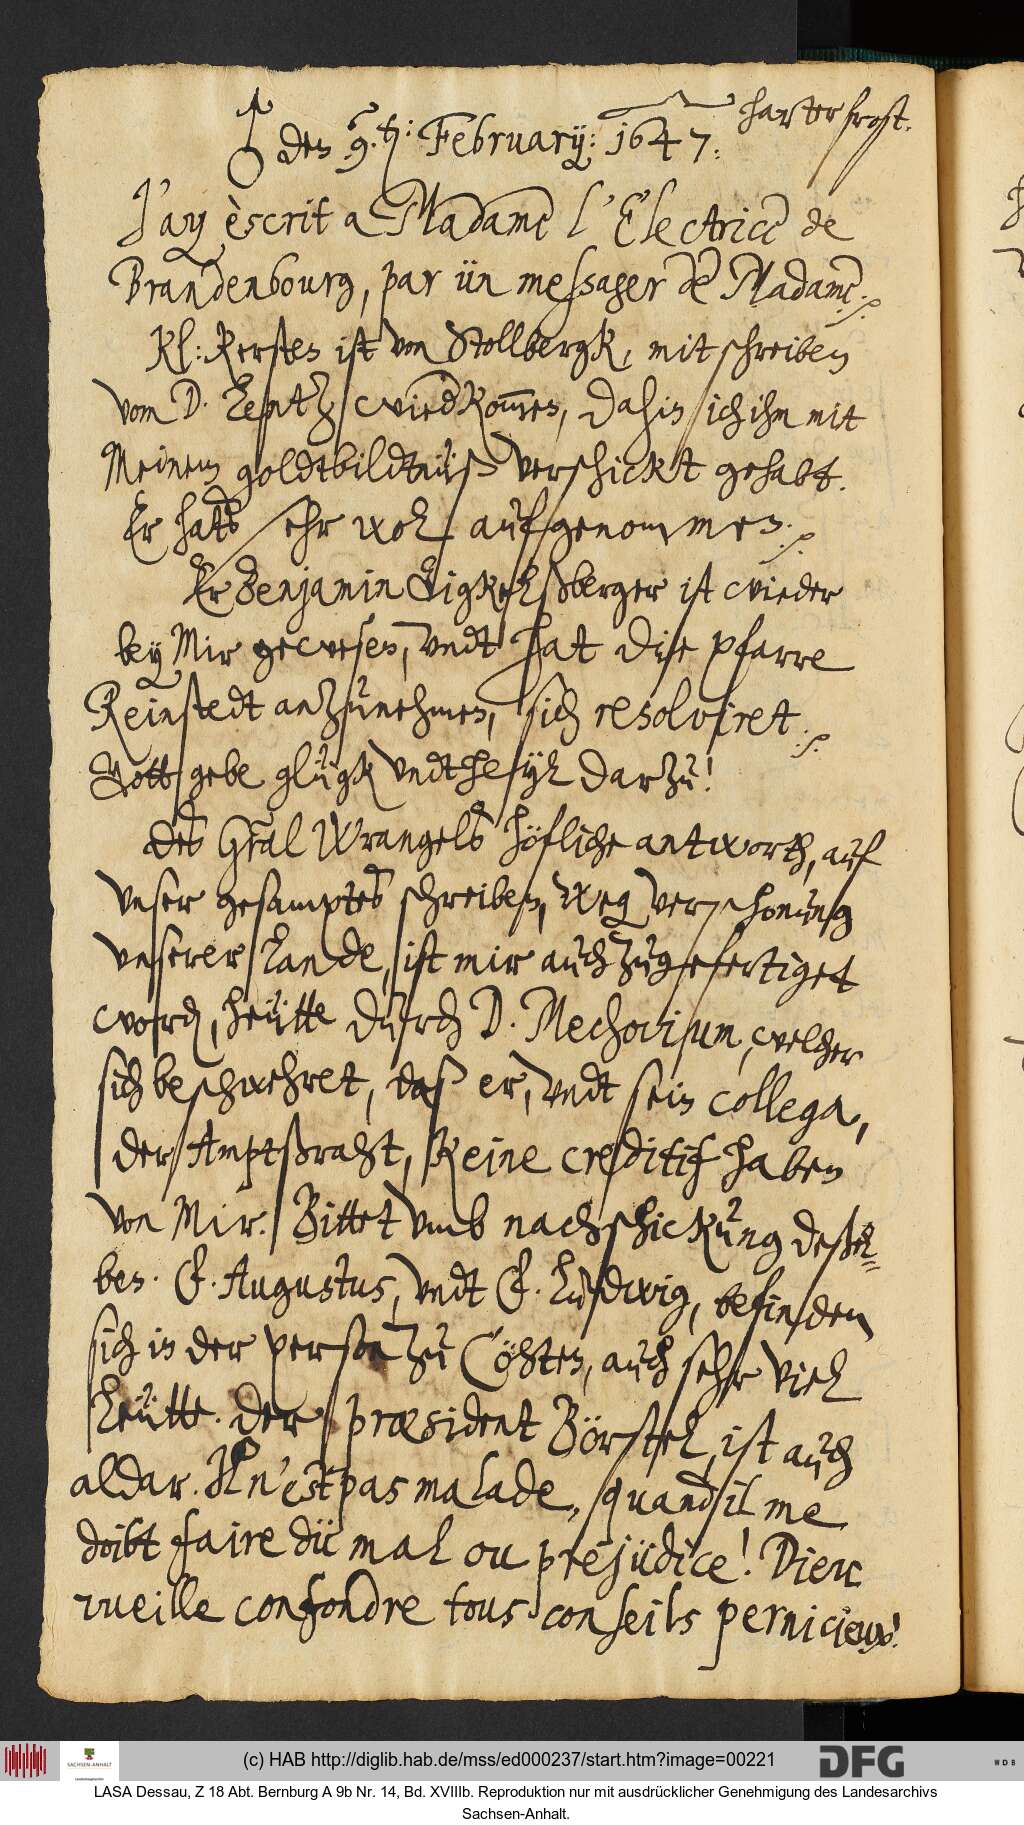 ♂ den 9.ten: February: 1647. harter frost.
J'ay èscrit a Madame l'Electrice de
Brandenbourg, par ün messager de Madame ./.
Kl: Kersten ist von Stollbergk, mit schreiben
vom D. Lentz wiederkom̅en, dahin ich ihn mit
Meinem goldtbildtnüß verschickt gehabt.
Er hats sehr wol aufgenommen. ./.
Er Benjamin Gigkelßberger ist wieder
bey Mir gewesen, vndt hat die pfarre
Reinstedt anzunehmen, sich resolviret ./.
Gott gebe glügk vndt heyl darzu!
des Gra̅l Wrangels höfliche antworth, auf
vnser gesamptes schreiben, weg verschonung
vnserer Lande, ist mir auch zugefertiget
worden, heütte durch D. Mechovium, welcher
sich beschwehret, daß er, vndt sein collega,
der Amptßraht, Keine creditif haben
von Mir. Bittet vmb nachschickung deßel=
ben. F. Augustus, vndt F. Ludwig, befinden
sich in der person zu Cöhten, auch sehr viel
Leütte. der præsident Börstel, ist auch
aldar. Il n'est pas malade, quand il me
doibt faire dü mal ou prejüdice! Dieu
vueille confondre tous conseils pernicieux!
(c) HAB http://diglib.hab.de/mss/ed000237/start.htm?image=00221
SACHSEN-ANHALT
DFG
WDB
LASA Dessau, Z 18 Abt. Bernburg A 9b Nr. 14, Bd. XVIIIb. Reproduktion nur mit ausdrücklicher Genehmigung des Landesarchivs
Sachsen-Anhalt.